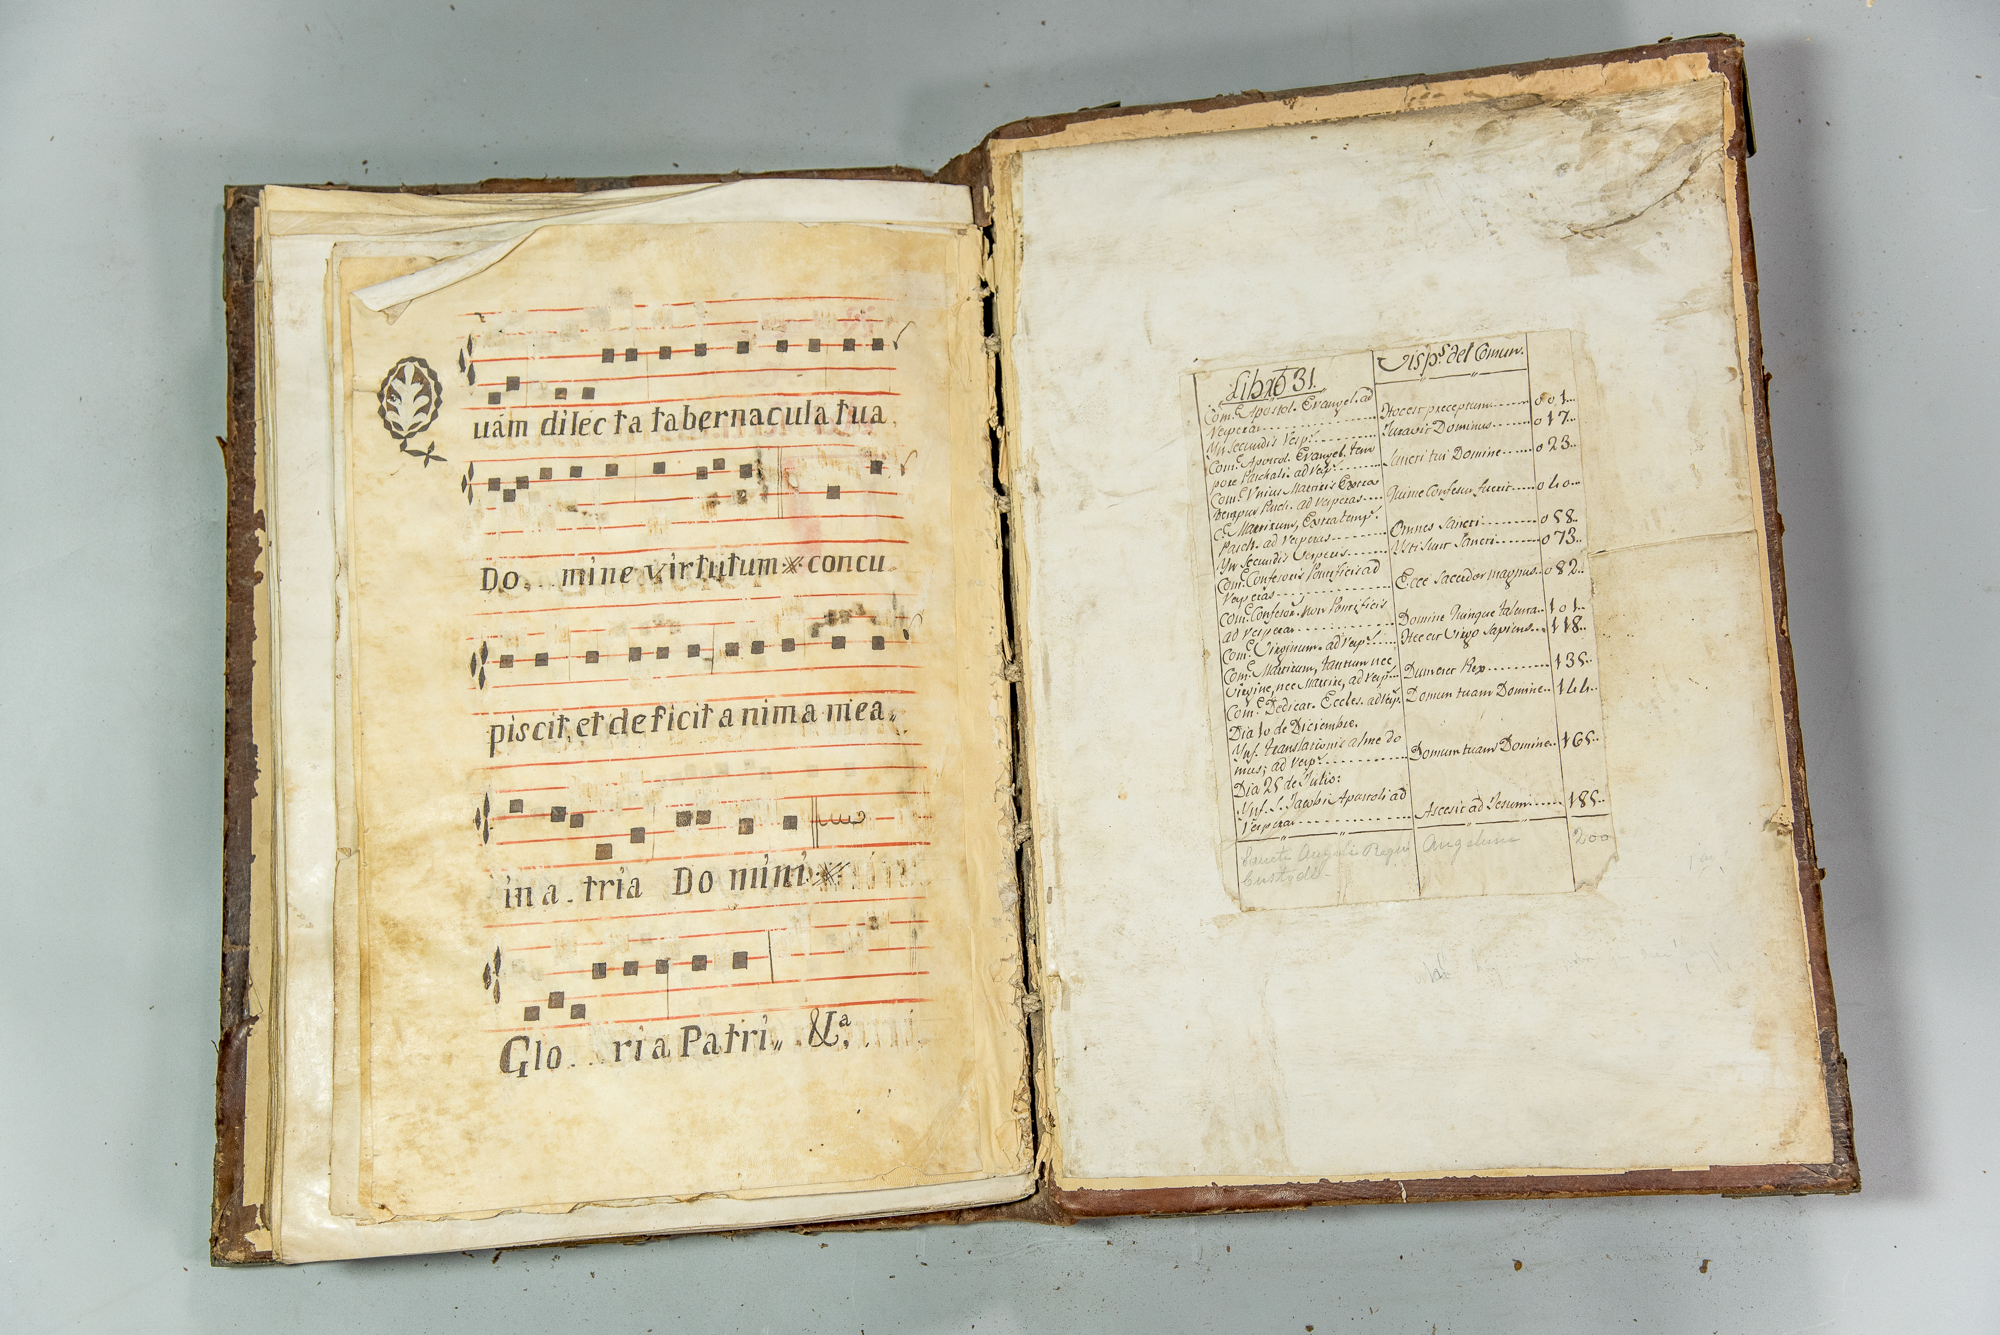 Quam dilecta tabernacula tua
Do.. mine virtutum concu
piscit, et deficit anima mea,,
in a. tria Domini
Glo.. ria Patri,, &ª,
Libro 31. Visp.s del Comun.
Com.e Apostol. Evangel. ad
Vesperas Hoc est preceptum 001..
Yn secundis Vesp.s Juravit Dominus 017..
Com.e Apostol. Evangel. tem
pore Paschali. ad vesp.s Sancti tui Domine 023..
Com.e Unius Martiris Extra
tempus Pasch. ad vesperas Quime Confesus fuerit 040..
C.e Martirum, Extra temp.s
Pasch. ad vesperas Omnes Sancti 058..
Yn Secundis Vesperis Ysti sunt Sancti 073..
Com.e Confesoris Pontificis ad
Vesperas Ecce Sacerdos magnus 082..
Com.e Confesor. non Pontificis
ad vesperas Domine Quinque talenta 101..
Com.e Virginum. ad vesp.s Hec est Virgo Sapiens 118..
Com.e Martirum, tantum nec
Virgine, nec Martire, ad vesp.s Dum eset Rex 135..
Com.e Dedicat. Eccles. ad vesp. Domum tuam Domine 144..
Dia 10 de Diciembre.
Ynf. translationis alme do
mus; ad vesp.s Domum tuam Domine 165..
Dia 25 de Julio:
Ynf. S. Jacobi Apostoli ad
Vesperas Ascesit ad Jesum 185..
Sancti Angeli Angelum 200
Custodi